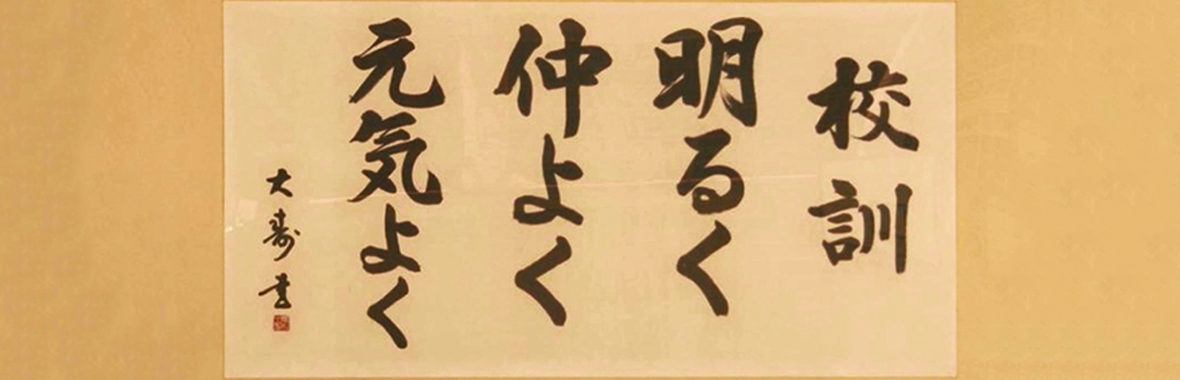 校訓
明るく
仲よく
元気よく
大寿書